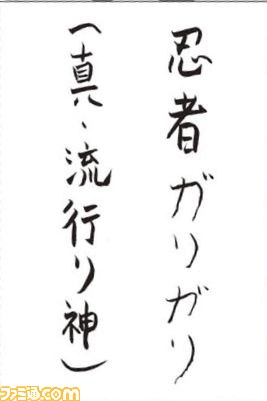 忍者ガリガリ
（真、流行り神）
ファミ通.com